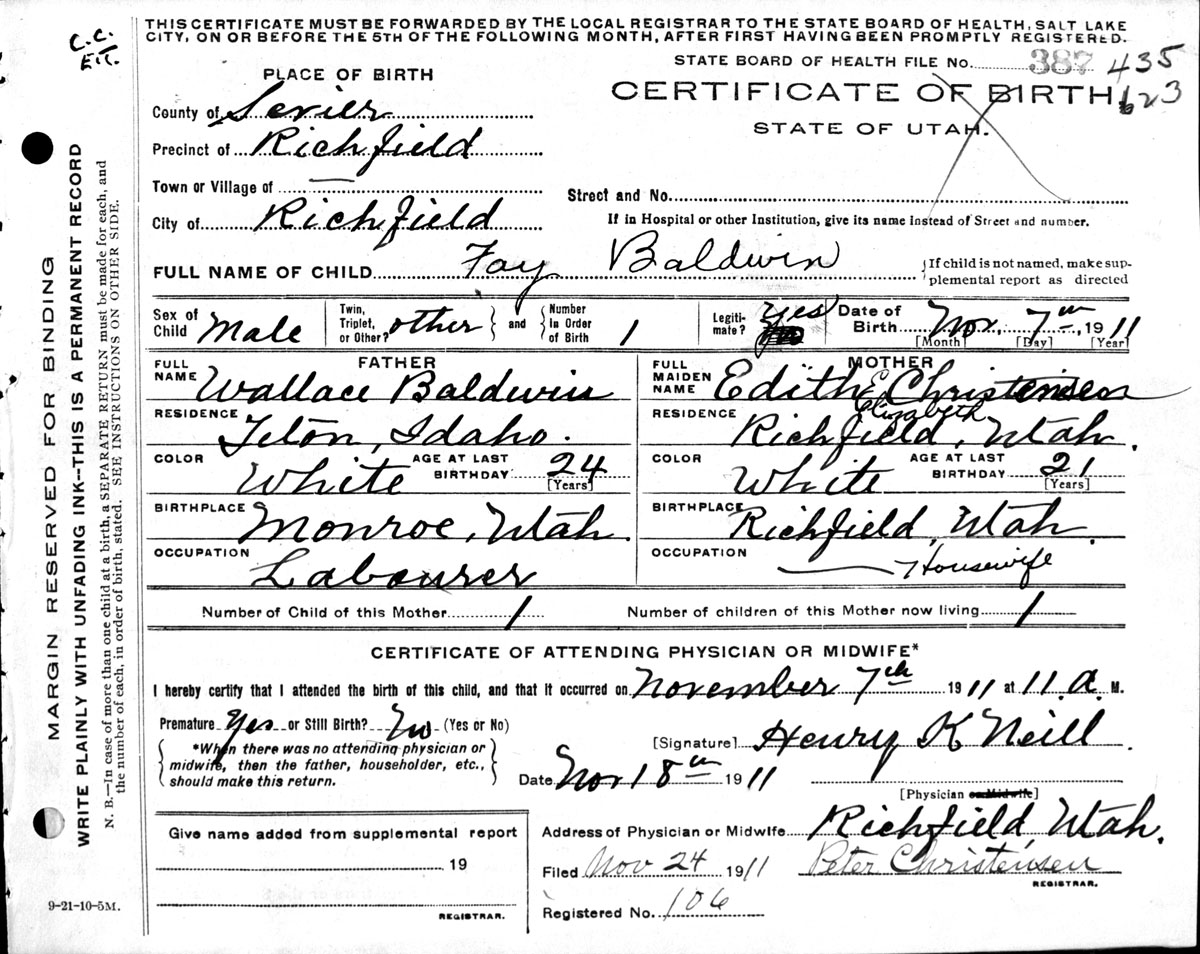 THIS CERTIFICATE MUST BE FORWARDED BY THE LOCAL REGISTRAR TO THE STATE BOARD OF HEALTH, SALT LAKE
CITY, ON OR BEFORE THE 5TH OF THE FOLLOWING MONTH, AFTER FIRST HAVING BEEN PROMPTLY REGISTERED.
C.C.
STATE BOARD OF HEALTH FILE No. 387 435
623
PLACE OF BIRTH
CERTIFICATE OF BIRTH
STATE OF UTAH.
County of Sevier
Precinct of Richfield
Town or Village of —
Street and No.
City of Richfield
If in Hospital or other Institution, give its name instead of Street and number.
FULL NAME OF CHILD Fay Baldwin
If child is not named, make sup-
plemental report as directed
Sex of Child Male
Twin, Triplet, or Other? other and Number In Order of Birth 1
Legiti-mate? Yes
Date of Birth Nov. 7th, 1911
[Month] [Day] [Year]
FATHER
FULL NAME Wallace Baldwin
RESIDENCE Teton, Idaho.
COLOR White AGE AT LAST BIRTHDAY 24
[Years]
BIRTHPLACE Monroe, Utah.
OCCUPATION Labourer
MOTHER
FULL MAIDEN NAME Edith E Christensen
Elizabeth
RESIDENCE Richfield, Utah.
COLOR White AGE AT LAST BIRTHDAY 21
[Years]
BIRTHPLACE Richfield, Utah.
OCCUPATION — Housewife
Number of Child of this Mother 1 Number of children of this Mother now living 1
CERTIFICATE OF ATTENDING PHYSICIAN OR MIDWIFE*
I hereby certify that I attended the birth of this child, and that it occurred on November 7th 1911 at 11.a.M.
Premature Yes or Still Birth? No (Yes or No)
*When there was no attending physician or
midwife, then the father, householder, etc.,
should make this return.
[Signature] Henry K Neill
Date Nov 18th 1911
[Physician or Midwife]
Address of Physician or Midwife Richfield, Utah.
Filed Nov 24 1911 Peter Christensen
REGISTRAR.
Registered No. 106
Give name added from supplemental report
19
REGISTRAR.
9-21-10-5M.
MARGIN RESERVED FOR BINDING
WRITE PLAINLY WITH UNFADING INK—THIS IS A PERMANENT RECORD
N. B.—In case of more than one child at a birth, a SEPARATE RETURN must be made for each, and
the number of each, in order of birth, stated. SEE INSTRUCTIONS ON OTHER SIDE.